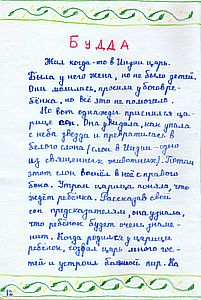 БУДДА
Жил когда-то в Индии царь.
Была у него жена, но не было детей.
Они молились, просили у богов ре-
бёнка, но всё это не помогало.
Но вот однажды приснился ца-
рице сон. Она увидала, как упала
с неба звезда и превратилась в
белого слона (слон в Индии - одно
из священных животных). Потом
этот слон вошёл в неё с правого
бока. Утром царица поняла, что
ждёт ребёнка. Рассказав свой
сон предсказателям, она узнала,
что ребёнок будет очень знаме-
нит. Когда родился у царицы
ребёнок, созвал царь много гос-
тей и устроил большой пир. На
12